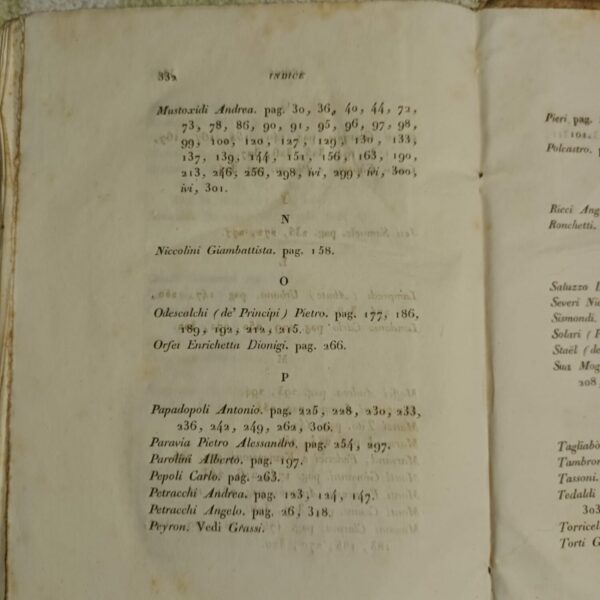 332
INDICE
Mustoxidi Andrea. pag. 30, 36, 40, 44, 72,
73, 78, 86, 90, 91, 95, 96, 97, 98,
99, 100, 120, 127, 129, 130, 133,
137, 139, 144, 151, 156, 163, 190,
213, 246, 256, 298, ivi, 299, ivi, 300,
ivi, 301.
N
Niccolini Giambattista. pag. 158.
O
Odescalchi (de' Principi) Pietro. pag. 177, 186,
189, 192, 212, 215.
Orfei Enrichetta Dionigi. pag. 266.
P
Papadopoli Antonio. pag. 225, 228, 230, 233,
236, 242, 249, 262, 306.
Paravia Pietro Alessandro. pag. 254, 297.
Parolini Alberto. pag. 197.
Pepoli Carlo. pag. 263.
Petracchi Andrea. pag. 123, 124, 147.
Petracchi Angelo. pag. 26, 318.
Peyron. Vedi Grassi.
Pieri. pag.
101.
Polcastro.
Ricci Ang
Ronchetti.
Saluzzo
Severi Nic
Sismondi.
Solari (
Staël (de
Sua Mog
208,
Tagliabò
Tambron
Tassoni.
Tedaldi
303
Torricel
Torti G